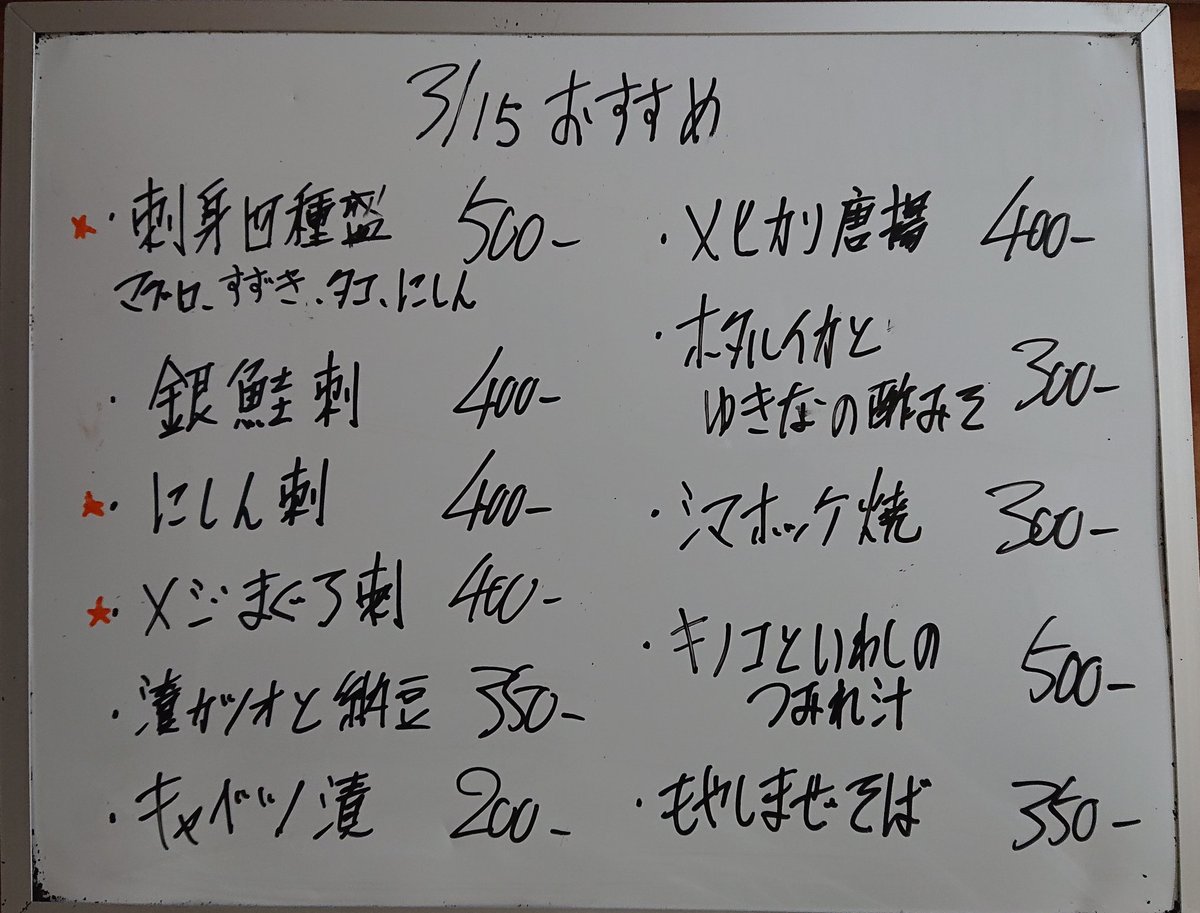 3/15 おすすめ
★・刺身四種盛 500-
マグロ、すずき、タコ、にしん
・銀鮭刺 400-
★・にしん刺 400-
★・メジまぐろ刺 400-
・漬ガツオと納豆 350-
・キャベツ漬 200-
・メヒカリ唐揚 400-
・ホタルイカと
ゆきなの酢みそ 300-
・シマホッケ焼 300-
・キノコといわしの
つみれ汁 500-
・もやしまぜそば 350-